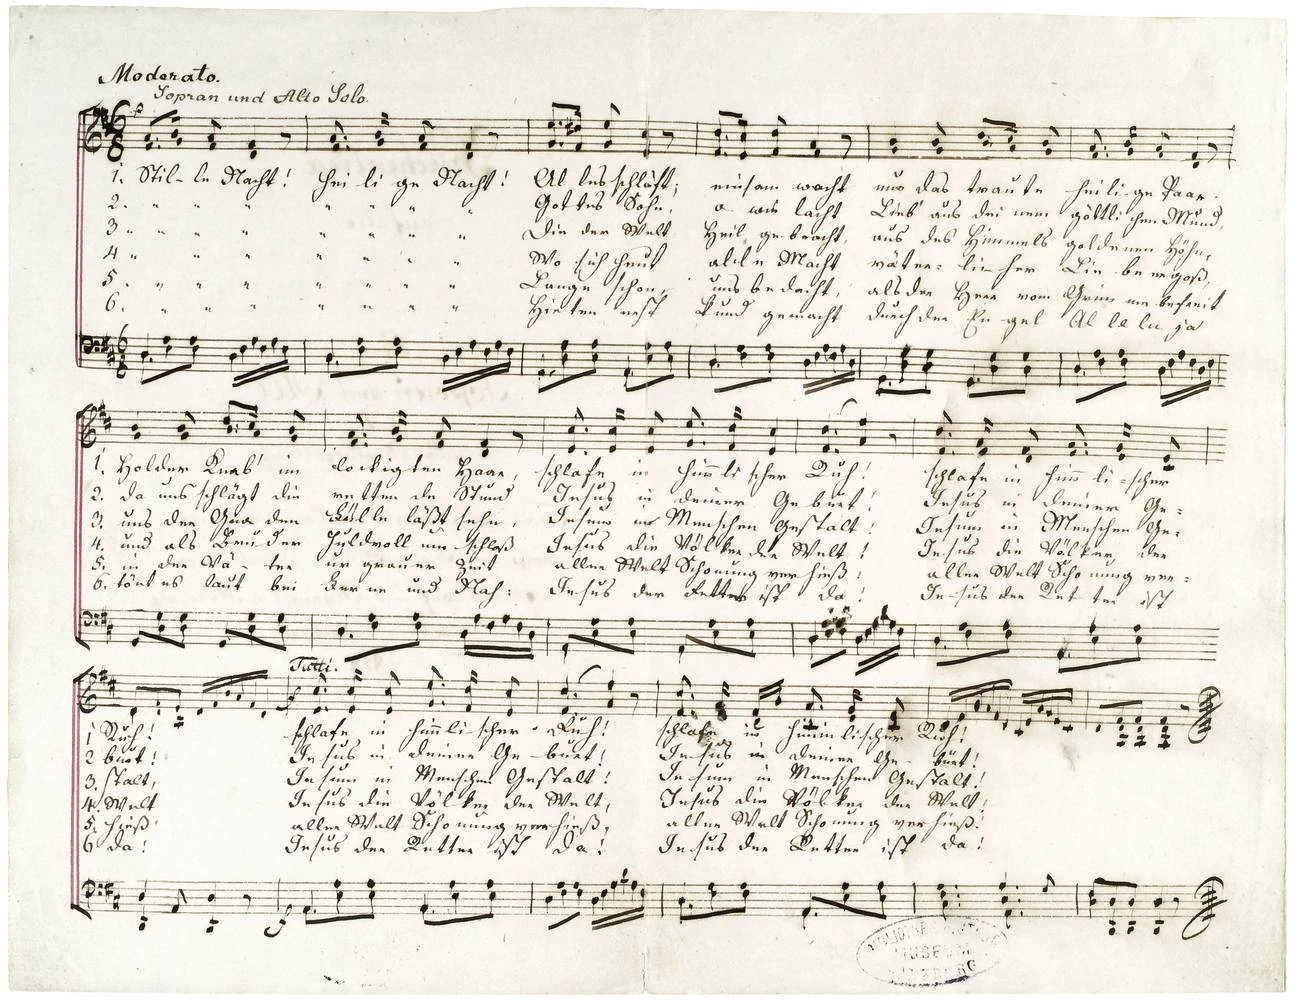 Moderato.
Sopran und Alto Solo.
p
1. Stil-le Nacht! hei li ge Nacht! Al les schläft; einsam wacht nur das traute heili-ge Paar.
2. " " " " " " " Gottes Sohn, o wie lacht Lieb' aus dei nem göttli chen Mund,
3. " " " " " " " Die der Welt Heil gebracht, aus des Himmels goldenen Höhn,
4. " " " " " " " Wo sich heut alle Macht väter-li-cher Lie be ergoß,
5. " " " " " " " Lange schon, uns bedacht, als der Herr vom Grim me befreit
6. " " " " " " " Hirten erst kund gemacht durch der En gel Al le lu ja
1. Holder Knab' im lockigten Haar, schlafe in him̅li scher Ruh! schlafe in him̅ li-scher
2. da uns schlägt die rettende Stund Jesus in deiner Ge burt! Jesus in deiner Ge-
3. uns der Gna den Fülle läßt sehn, Jesum in Menschen Gestalt! Jesum in Menschen Ge-
4. und als Bruder huldvoll um schloß Jesus die Völker der Welt! Jesus die Völker der
5. in der Vä-ter ur grauer Zeit aller Welt Schonung verhieß! aller Welt Scho nung ver-
6. tönt es laut bei Ferne und Nah: Jesus der Retter ist da! Je-sus der Ret-ter ist
Tutti.
f
1 Ruh! schlafe in him̅li scher Ruh! schlafe in him̅lischer Ruh!
2 burt! Je sus in deiner Ge burt! Je sus in deiner Ge burt!
3. stalt, Je sum in Menschen Gestalt! Je sum in Menschen Gestalt!
4. Welt Je sus die Völker der Welt, Jesus die Völker der Welt,
5. hieß! aller Welt Scho nung verhieß, aller Welt Scho nung verhieß!
6 da! Je sus der Retter ist da! Je sus der Retter ist da!
f
MUSEUM